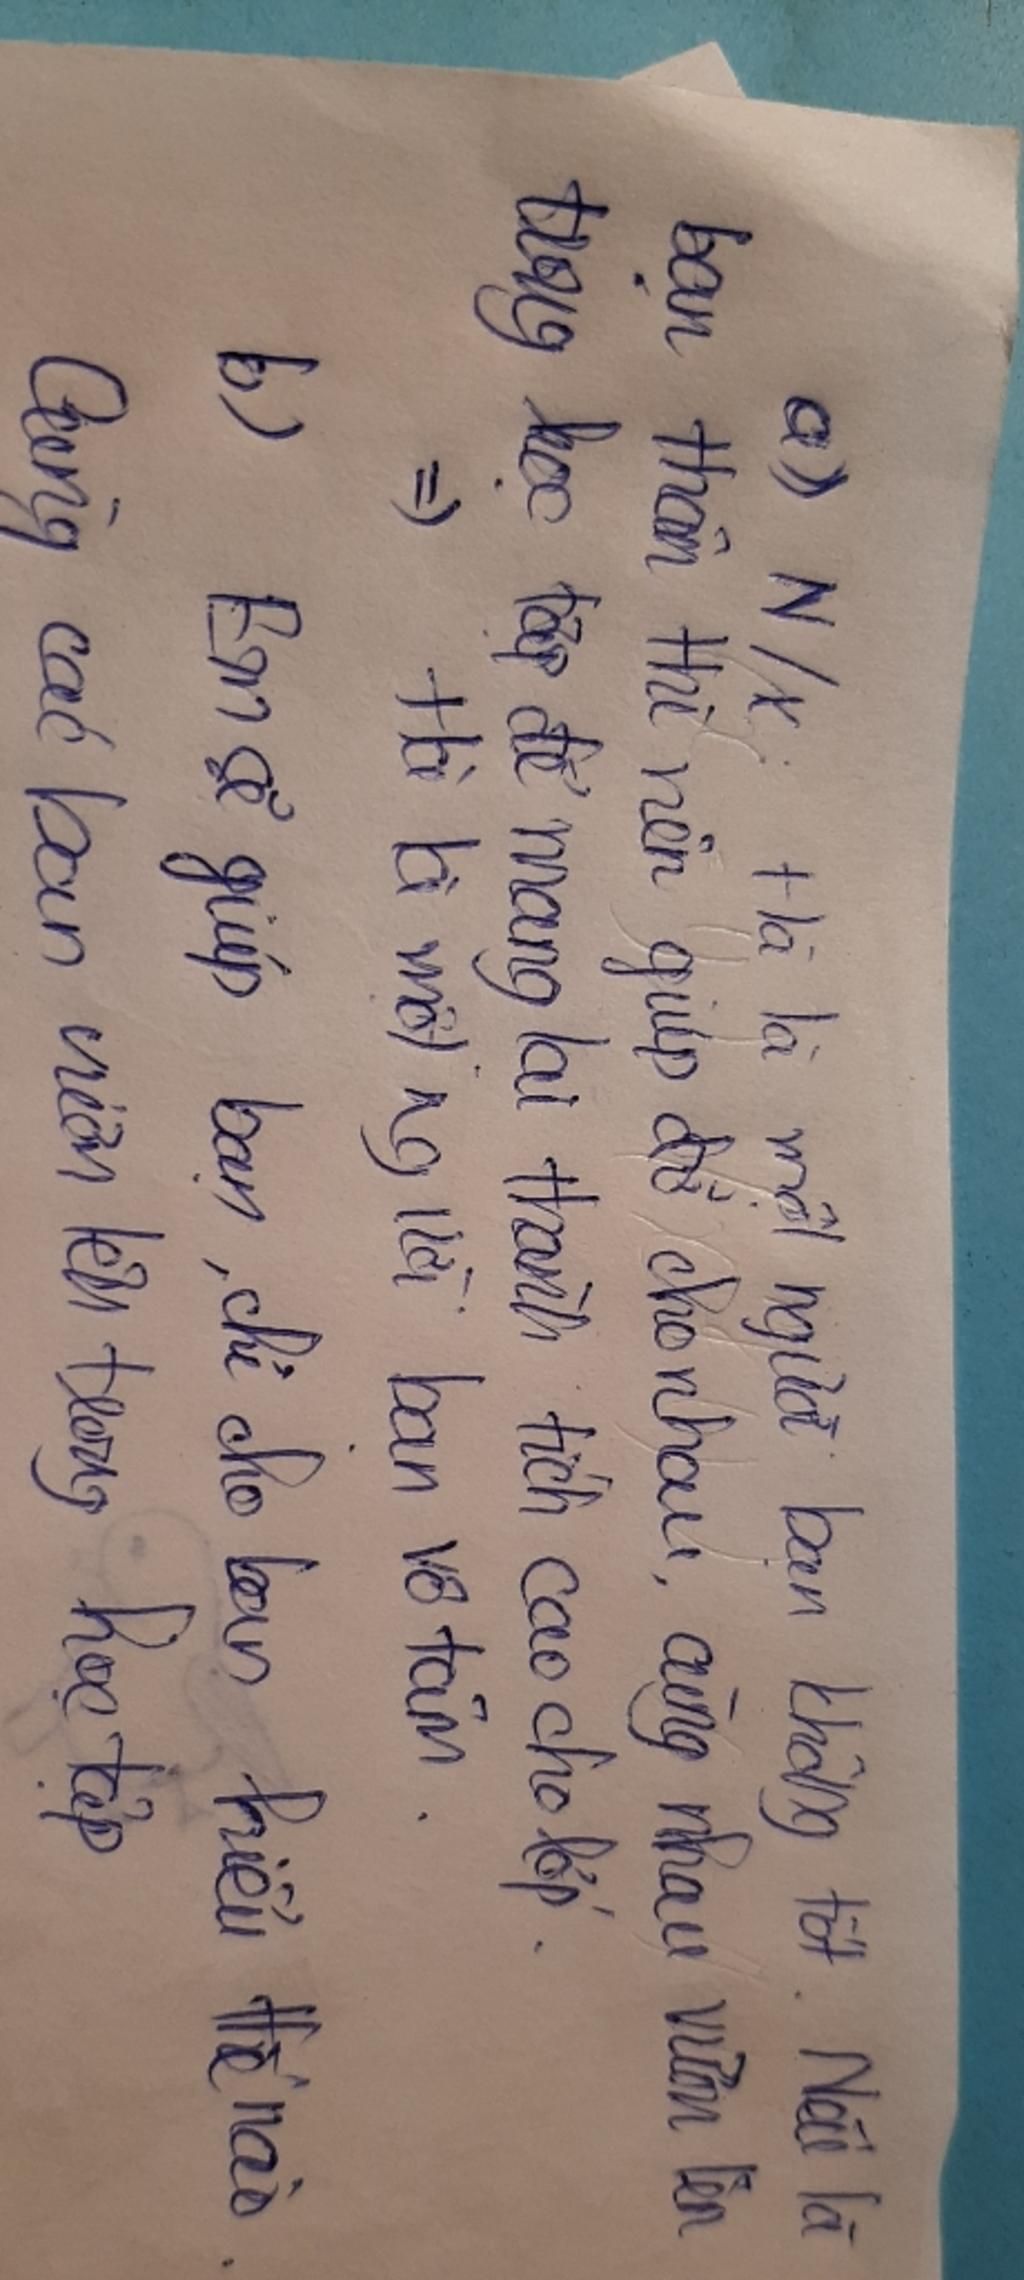 a) N/x: + Hà là một người bạn không tốt. Nếu là
bạn thân thì nên giúp đỡ cho nhau, cùng nhau vươn lên
trong học tập để mang lại thành tích cao cho lớp.
=> Hà là một người bạn vô tâm.
b) Em sẽ giúp bạn, chỉ cho bạn hiểu thế nào.
Cùng các bạn vươn lên trong học tập